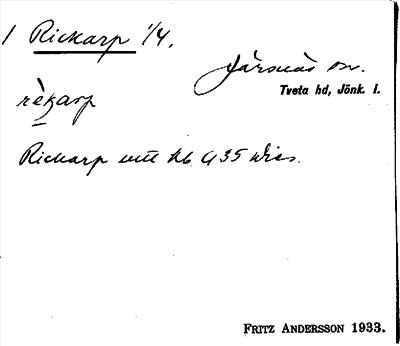 1 Rickarp 1/4.
Järsnäs sn.
Tveta hd, Jönk. l.
rèkarp
Rickarp
FRITZ ANDERSSON 1933.